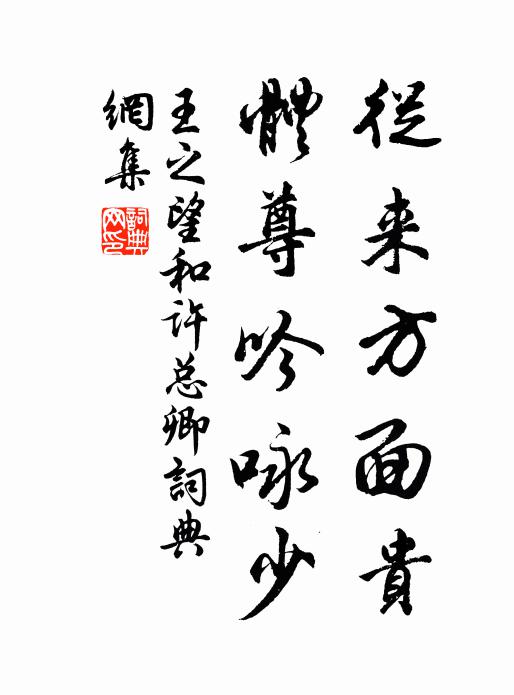 從来方面貴
體尊吟咏少
王之望和许总卿詞典
網集
詞典网印